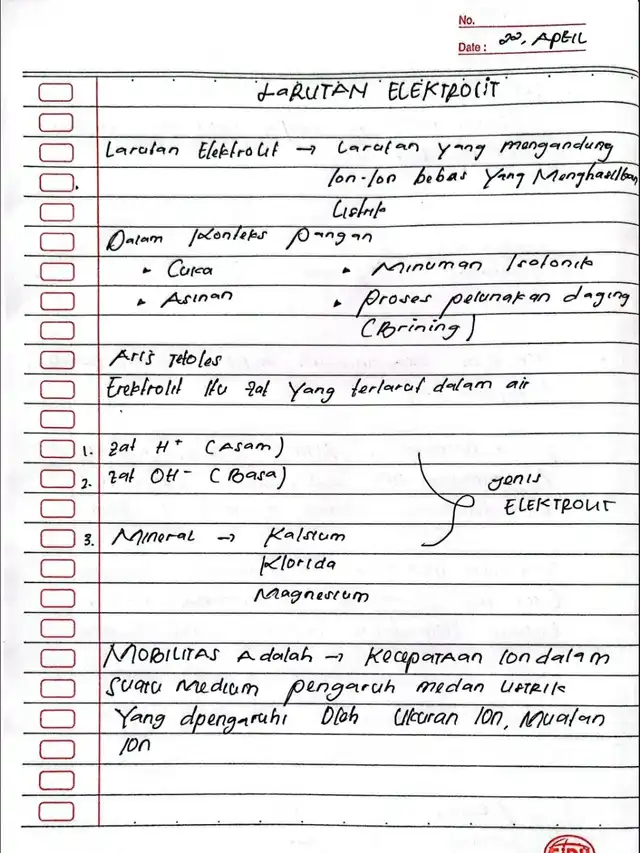 No.
Date: 20, APRIL
LARUTAN ELEKTROLIT
Larutan Elektrolit → Larutan yang mengandung
Ion-Ion bebas yang Menghasilkan
Listrik
Dalam Konteks pangan
• Cuka • Minuman Isotonik
• Asinan • Proses pelunakan daging
(Brining)
Aris
Elektrolit Itu zat yang terlarut dalam air
1. zat H+ (Asam)
2. zat OH- (Basa)
Jenis
ELEKTROLIT
3. Mineral → Kalsium
Klorida
Magnesium
MOBILITAS Adalah → Kecepataan Ion dalam
Suatu Medium pengaruh medan LISTRIK
Yang dpengaruhi Oleh Ukuran Ion, Muatan
Ion